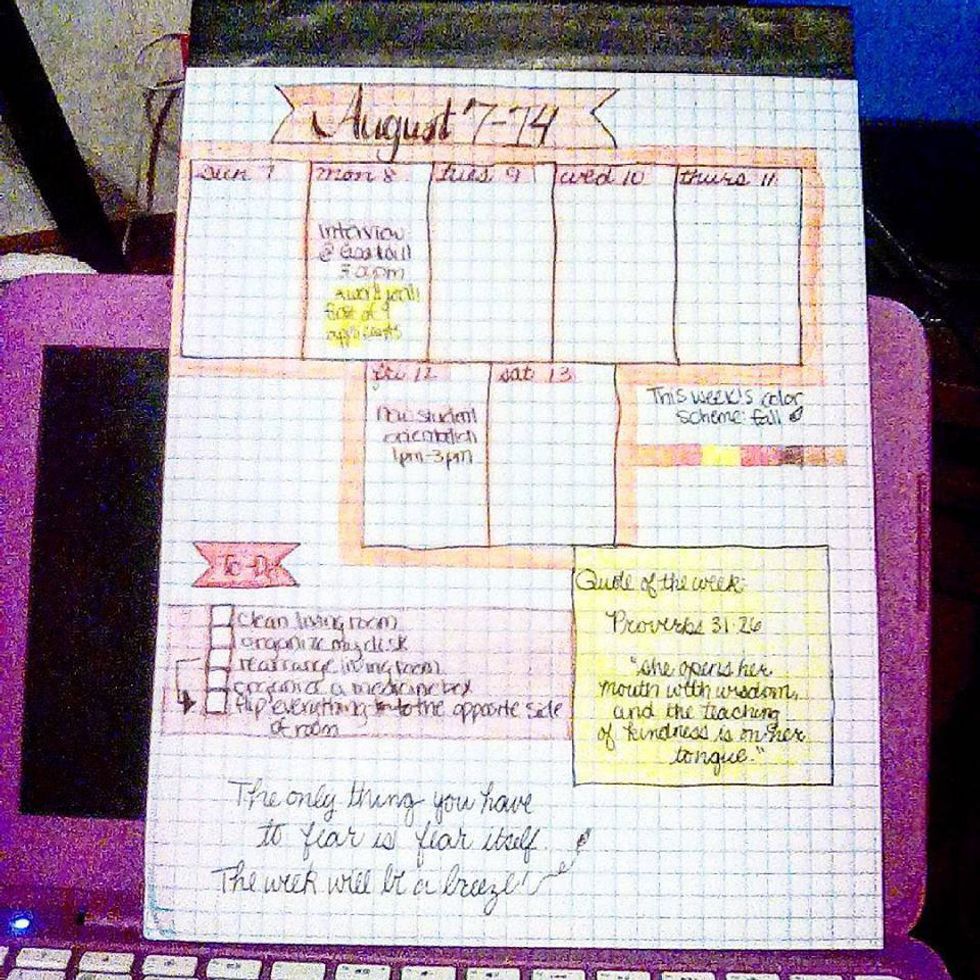 August 7-14
sun 7
mon 8
tues 9
wed 10
thurs 11
Interview
@
pm
first of 4
fri 12
sat 13
new student
orientation
1pm-3pm
This week's color
scheme: fall
To-Do
clean living room
organize my desk
rearrange living room
organize a medicine box
flip everything to the opposite side
of room
Quote of the week:
Proverbs 31:26
"she opens her
mouth with wisdom,
and the teaching
of kindness is on her
tongue."
The only thing you have
to fear is fear itself.
The week will be a breeze!